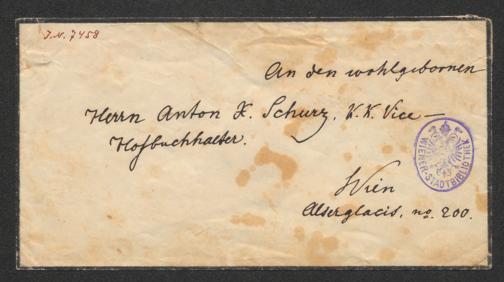 J.N. 7458
An den wohlgebornen
Herrn Anton X. Schurz, K.K. Vice-
Hofbuchhalter.
WIENER-STADTBIBLIOTHEK
Wien
Alserglacis, no. 200.